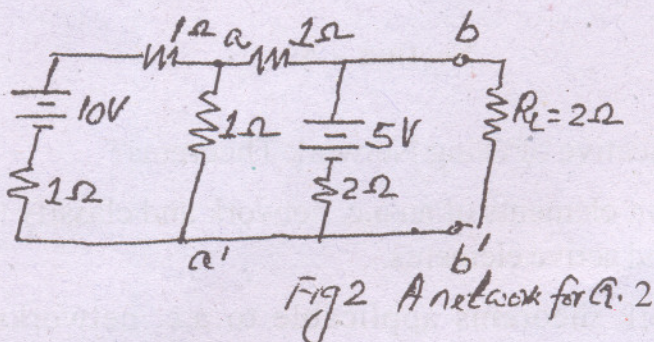 1Ω a 1Ω b
10V 1Ω 5V RL=2Ω
1Ω 2Ω
a' b'
Fig 2 A network for Q. 2